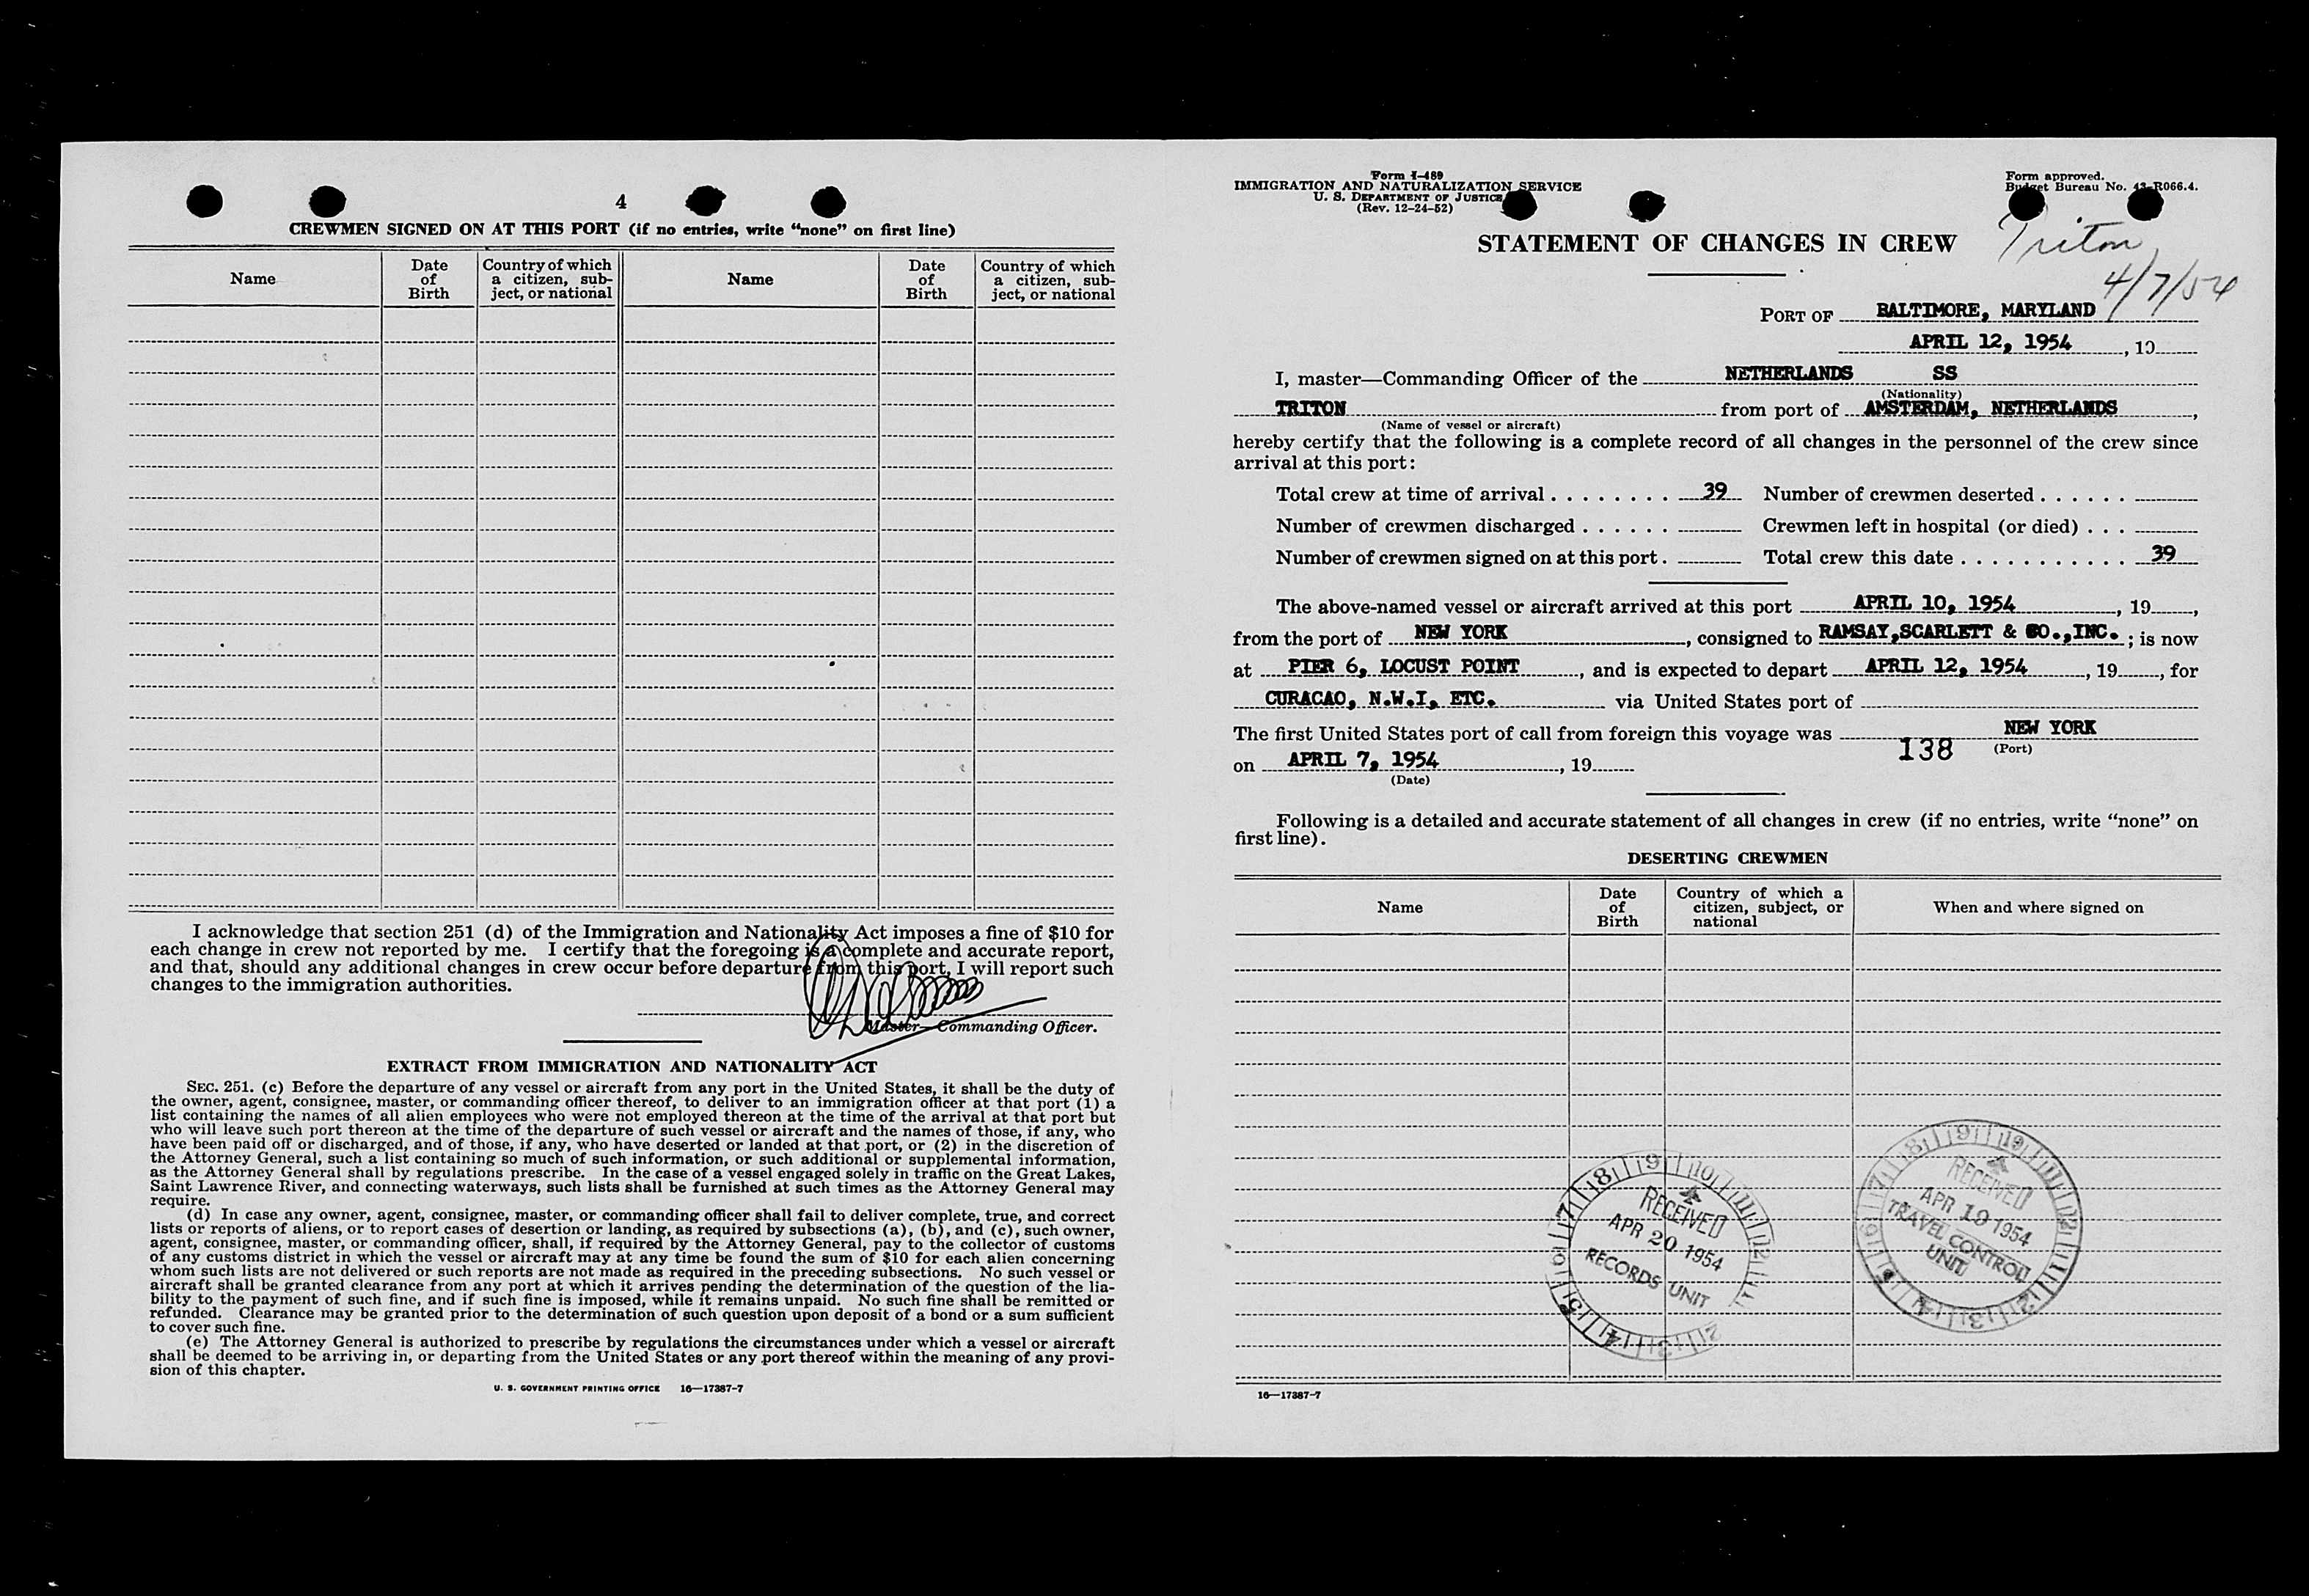 4
CREWMEN SIGNED ON AT THIS PORT (if no entries, write “none” on first line)
Name
Date of Birth
Country of which a citizen, subject, or national
Name
Date of Birth
Country of which a citizen, subject, or national
I acknowledge that section 251 (d) of the Immigration and Nationality Act imposes a fine of $10 for
each change in crew not reported by me. I certify that the foregoing is a complete and accurate report,
and that, should any additional changes in crew occur before departure from this port, I will report such
changes to the immigration authorities.
Master—Commanding Officer.
EXTRACT FROM IMMIGRATION AND NATIONALITY ACT
SEC. 251. (c) Before the departure of any vessel or aircraft from any port in the United States, it shall be the duty of
the owner, agent, consignee, master, or commanding officer thereof, to deliver to an immigration officer at that port (1) a
list containing the names of all alien employees who were not employed thereon at the time of the arrival at that port but
who will leave such port thereon at the time of the departure of such vessel or aircraft and the names of those, if any, who
have been paid off or discharged, and of those, if any, who have deserted or landed at that port, or (2) in the discretion of
the Attorney General, such a list containing so much of such information, or such additional or supplemental information,
as the Attorney General shall by regulations prescribe. In the case of a vessel engaged solely in traffic on the Great Lakes,
Saint Lawrence River, and connecting waterways, such lists shall be furnished at such times as the Attorney General may
require.
(d) In case any owner, agent, consignee, master, or commanding officer shall fail to deliver complete, true, and correct
lists or reports of aliens, or to report cases of desertion or landing, as required by subsections (a), (b), and (c), such owner,
agent, consignee, master, or commanding officer, shall, if required by the Attorney General, pay to the collector of customs
of any customs district in which the vessel or aircraft may at any time be found the sum of $10 for each alien concerning
whom such lists are not delivered or such reports are not made as required in the preceding subsections. No such vessel or
aircraft shall be granted clearance from any port at which it arrives pending the determination of the question of the lia-
bility to the payment of such fine, and if such fine is imposed, while it remains unpaid. No such fine shall be remitted or
refunded. Clearance may be granted prior to the determination of such question upon deposit of a bond or a sum sufficient
to cover such fine.
(e) The Attorney General is authorized to prescribe by regulations the circumstances under which a vessel or aircraft
shall be deemed to be arriving in, or departing from the United States or any port thereof within the meaning of any provi-
sion of this chapter.
U. S. GOVERNMENT PRINTING OFFICE 16—17387-7
Form I-489
IMMIGRATION AND NATURALIZATION SERVICE
U. S. DEPARTMENT OF JUSTICE
(Rev. 12-24-52)
Form approved.
Budget Bureau No. 43-R066.4.
Triton
4/7/54
STATEMENT OF CHANGES IN CREW
PORT OF BALTIMORE, MARYLAND
APRIL 12, 1954, 19
I, master—Commanding Officer of the NETHERLANDS SS
(Nationality)
TRITON from port of AMSTERDAM, NETHERLANDS,
(Name of vessel or aircraft)
hereby certify that the following is a complete record of all changes in the personnel of the crew since
arrival at this port:
Total crew at time of arrival . . . . . . . . 39 Number of crewmen deserted . . . . . .
Number of crewmen discharged . . . . . . Crewmen left in hospital (or died) . . .
Number of crewmen signed on at this port . Total crew this date . . . . . . . . . . . 39
The above-named vessel or aircraft arrived at this port APRIL 10, 1954, 19,
from the port of NEW YORK, consigned to RAMSAY,SCARLETT & CO.,INC. ; is now
at PIER 6, LOCUST POINT, and is expected to depart APRIL 12, 1954, 19, for
CURACAO, N.W.I, ETC. via United States port of
The first United States port of call from foreign this voyage was NEW YORK
138 (Port)
on APRIL 7, 1954, 19
(Date)
Following is a detailed and accurate statement of all changes in crew (if no entries, write “none” on
first line).
DESERTING CREWMEN
Name
Date of Birth
Country of which a citizen, subject, or national
When and where signed on
7 8 9 10 11 12 1 2 3 4 5 6
RECEIVED
APR 20 1954
RECORDS UNIT
7 8 9 10 11 12 1 2 3 4 5 6
RECEIVED
APR 19 1954
TRAVEL CONTROL
UNIT
16—17387-7